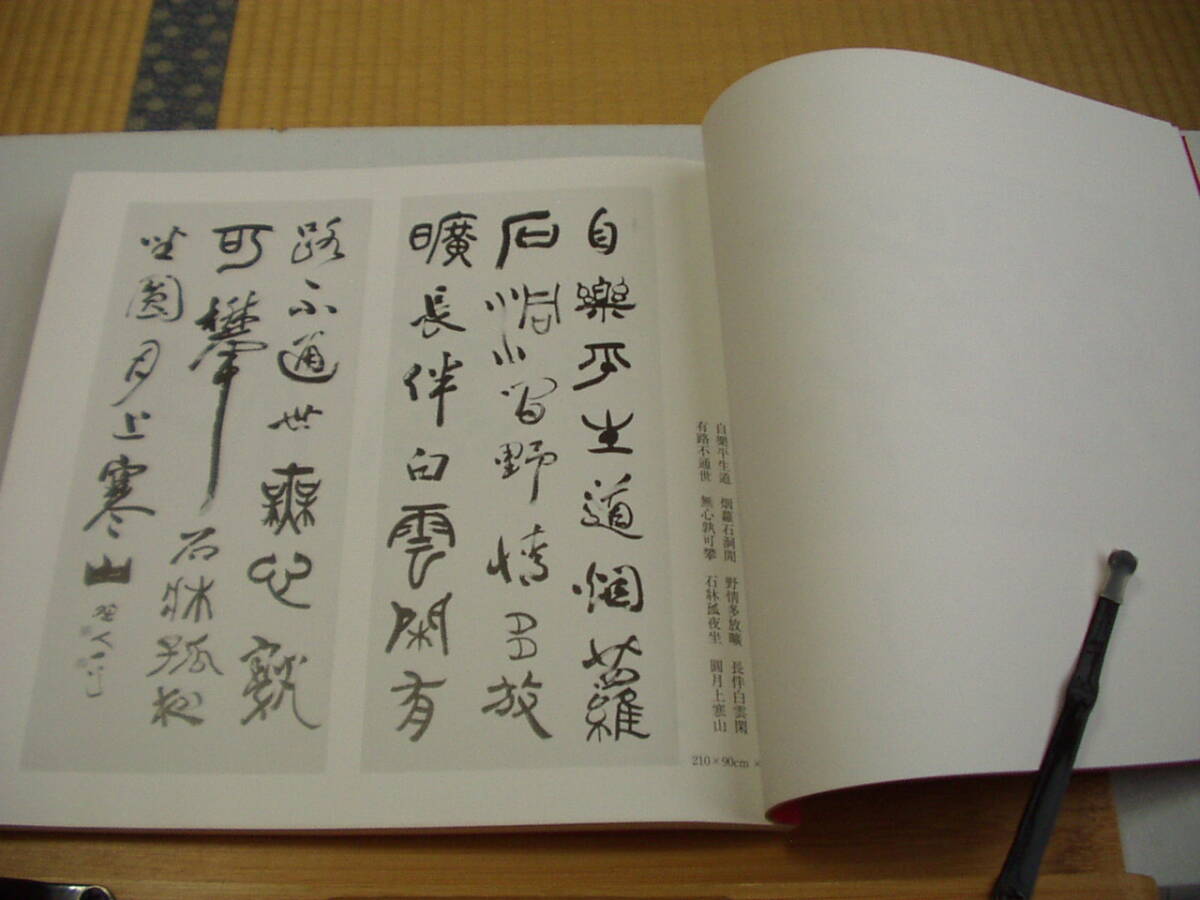 自樂平生道烟蘿
石洞間野情多放
曠長伴白雲閑有
路不通世無心孰
可攀石牀孤夜
坐圓月上寒山
自樂平生道　烟蘿石洞間　野情多放曠　長伴白雲閑
有路不通世　無心孰可攀　石牀孤夜坐　圓月上寒山
210×90cm ×